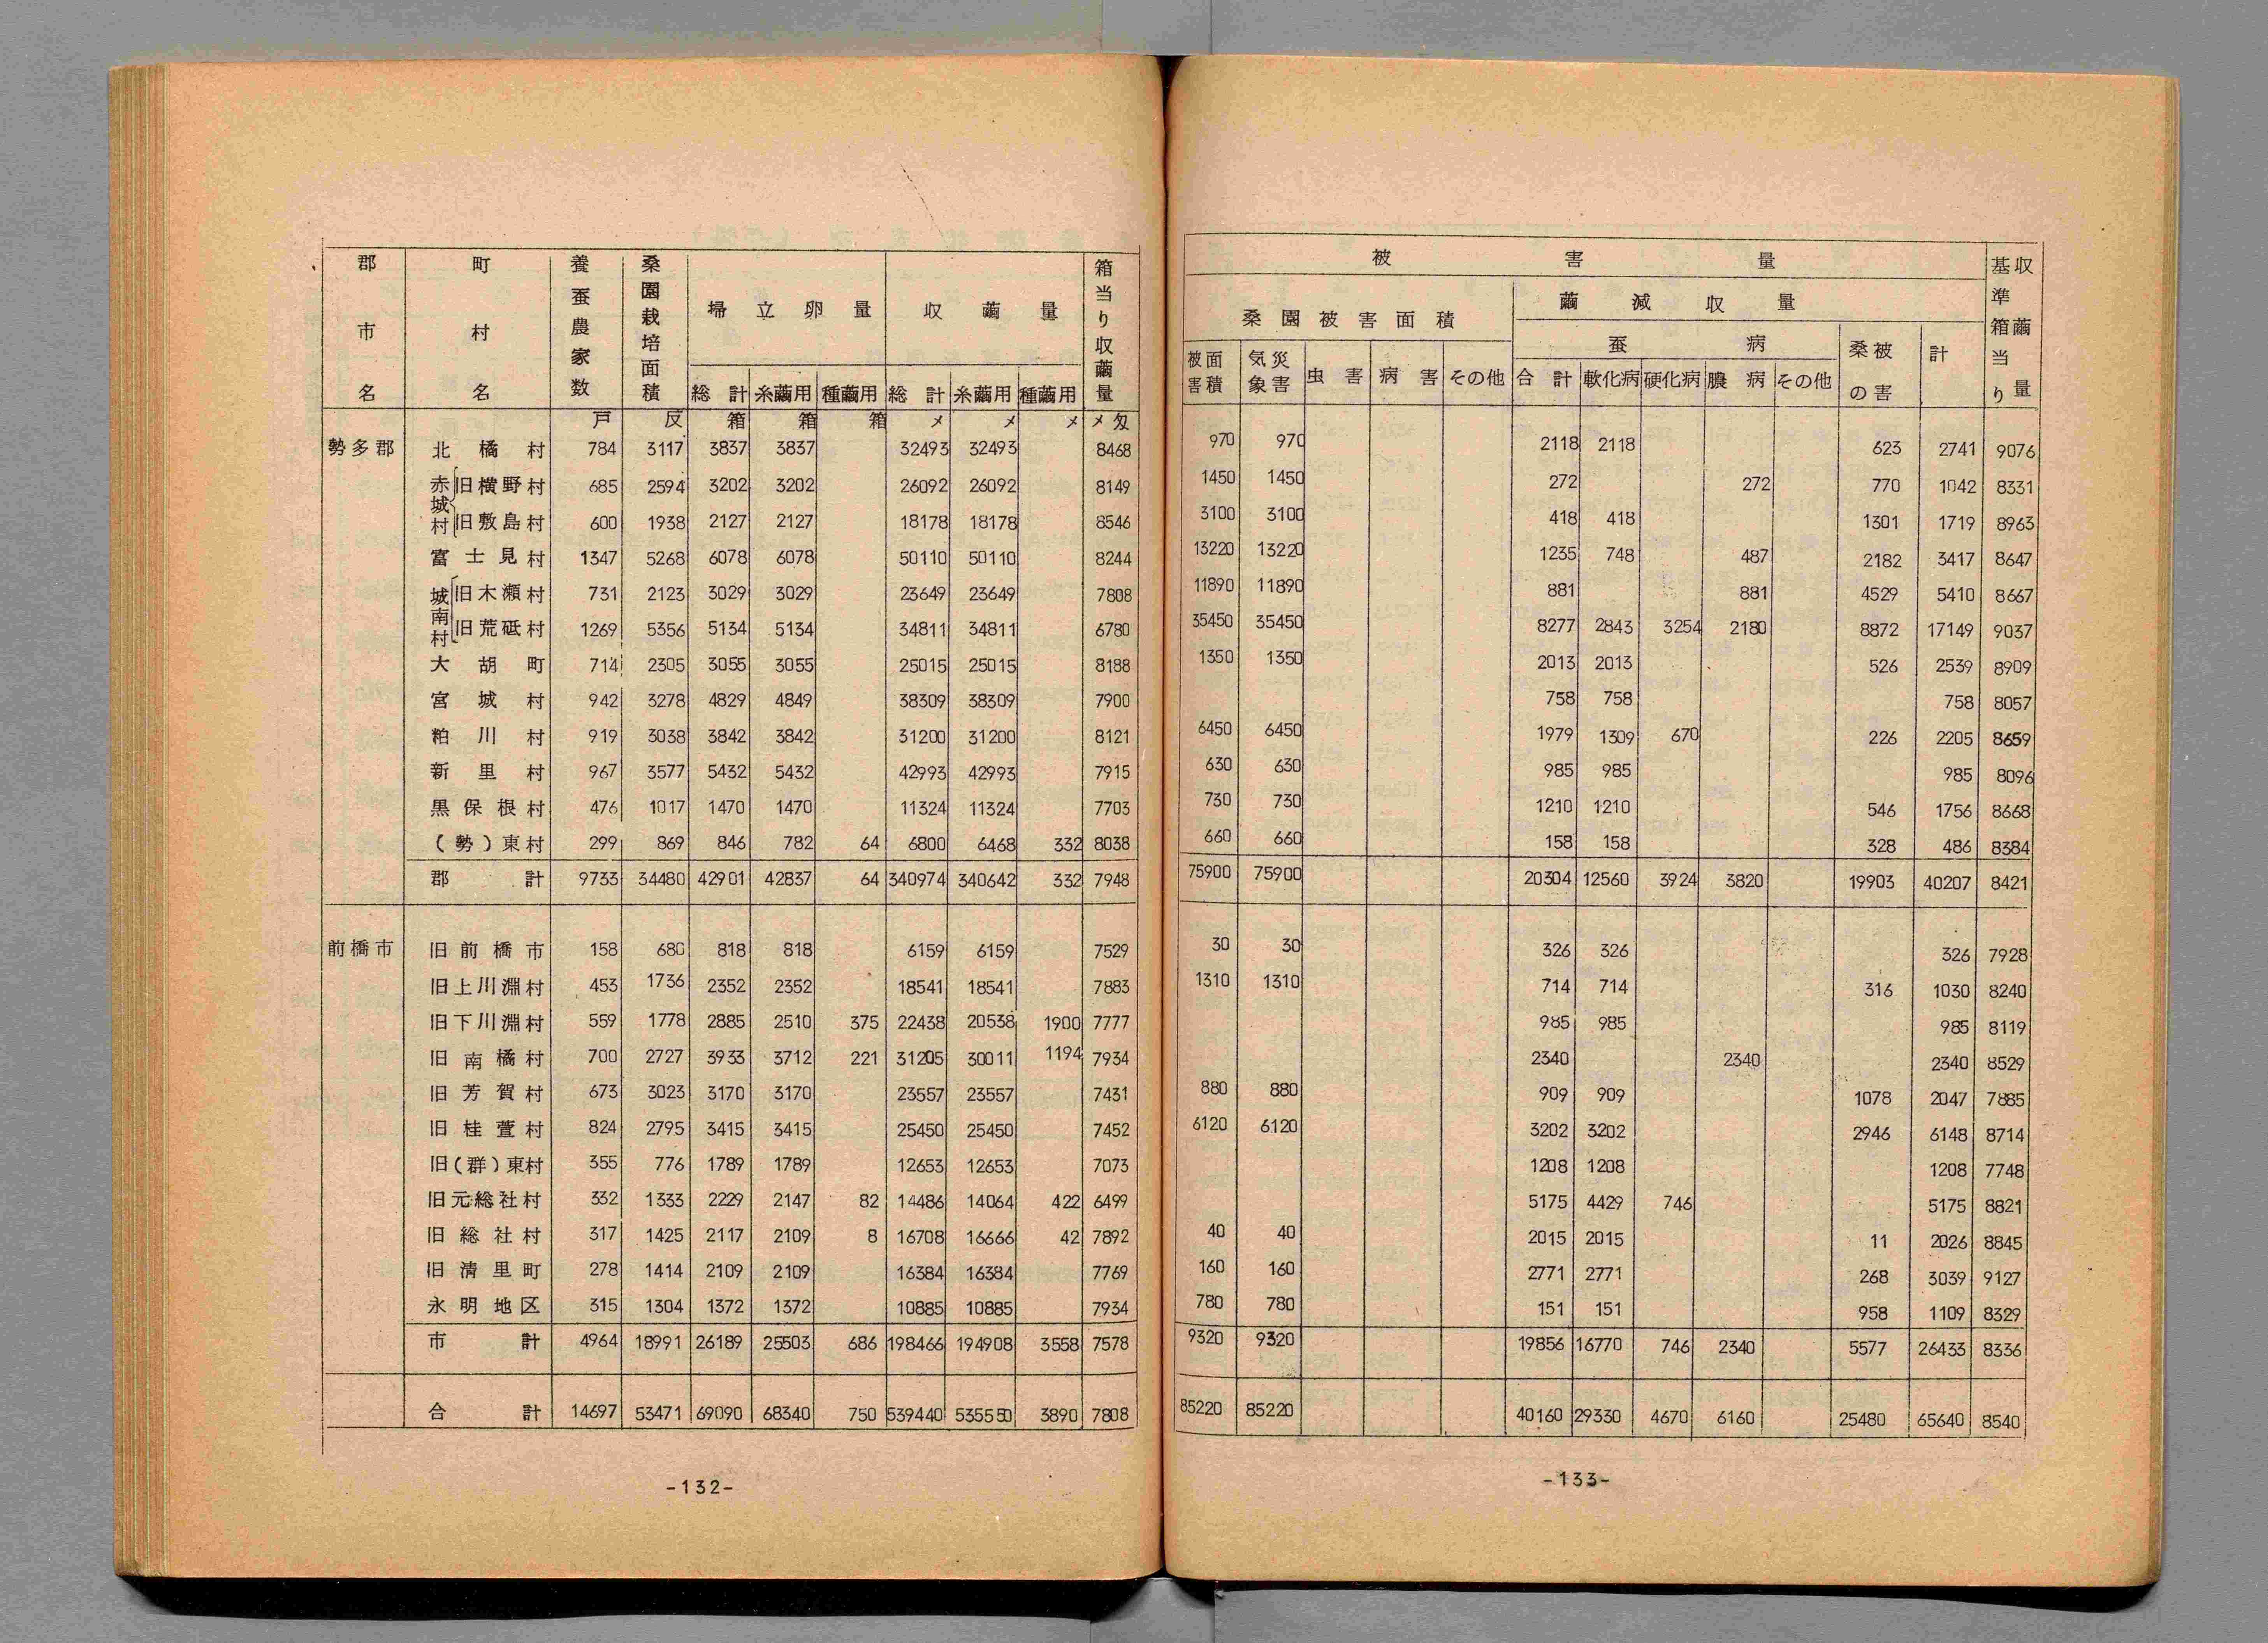 郡市名 町村名 養蚕農家数 桑園栽培面積 掃立卵量 収繭量 箱当り収繭量
総計 糸繭用 種繭用 総計 糸繭用 種繭用
戸 反 箱 箱 箱 〆 〆 〆 〆匁
勢多郡 北橘村 784 3117 3837 3837 32493 32493 8468
赤城村 旧横野村 685 2594 3202 3202 26092 26092 8149
旧敷島村 600 1938 2127 2127 18178 18178 8546
富士見村 1347 5268 6078 6078 50110 50110 8244
城南村 旧木瀬村 731 2123 3029 3029 23649 23649 7808
旧荒砥村 1269 5356 5134 5134 34811 34811 6780
大胡町 714 2305 3055 3055 25015 25015 8188
宮城村 942 3278 4829 4849 38309 38309 7900
粕川村 919 3038 3842 3842 31200 31200 8121
新里村 967 3577 5432 5432 42993 42993 7915
黒保根村 476 1017 1470 1470 11324 11324 7703
(勢)東村 299 869 846 782 64 6800 6468 332 8038
郡計 9733 34480 42901 42837 64 340974 340642 332 7948
前橋市 旧前橋市 158 680 818 818 6159 6159 7529
旧上川淵村 453 1736 2352 2352 18541 18541 7883
旧下川淵村 559 1778 2885 2510 375 22438 20538 1900 7777
旧南橘村 700 2727 3933 3712 221 31205 30011 1194 7934
旧芳賀村 673 3023 3170 3170 23557 23557 7431
旧桂萱村 824 2795 3415 3415 25450 25450 7452
旧(群)東村 355 776 1789 1789 12653 12653 7073
旧元総社村 332 1333 2229 2147 82 14486 14064 422 6499
旧総社村 317 1425 2117 2109 8 16708 16666 42 7892
旧清里町 278 1414 2109 2109 16384 16384 7769
永明地区 315 1304 1372 1372 10885 10885 7934
市計 4964 18991 26189 25503 686 198466 194908 3558 7578
合計 14697 53471 69090 68340 750 539440 535550 3890 7808
-132-
被害量 基準箱当り収繭量
桑園被害面積 繭減収量
蚕病 桑の被害 計
被害面積 気象災害 虫害 病害 その他 合計 軟化病 硬化病 膿病 その他
970 970 2118 2118 623 2741 9076
1450 1450 272 272 770 1042 8331
3100 3100 418 418 1301 1719 8963
13220 13220 1235 748 487 2182 3417 8647
11890 11890 881 881 4529 5410 8667
35450 35450 8277 2843 3254 2180 8872 17149 9037
1350 1350 2013 2013 526 2539 8909
758 758 758 8057
6450 6450 1979 1309 670 226 2205 8659
630 630 985 985 985 8096
730 730 1210 1210 546 1756 8668
660 660 158 158 328 486 8384
75900 75900 20304 12560 3924 3820 19903 40207 8421
30 30 326 326 326 7928
1310 1310 714 714 316 1030 8240
985 985 985 8119
2340 2340 2340 8529
880 880 909 909 1078 2047 7885
6120 6120 3202 3202 2946 6148 8714
1208 1208 1208 7748
5175 4429 746 5175 8821
40 40 2015 2015 11 2026 8845
160 160 2771 2771 268 3039 9127
780 780 151 151 958 1109 8329
9320 9320 19856 16770 746 2340 5577 26433 8336
85220 85220 40160 29330 4670 6160 25480 65640 8540
-133-